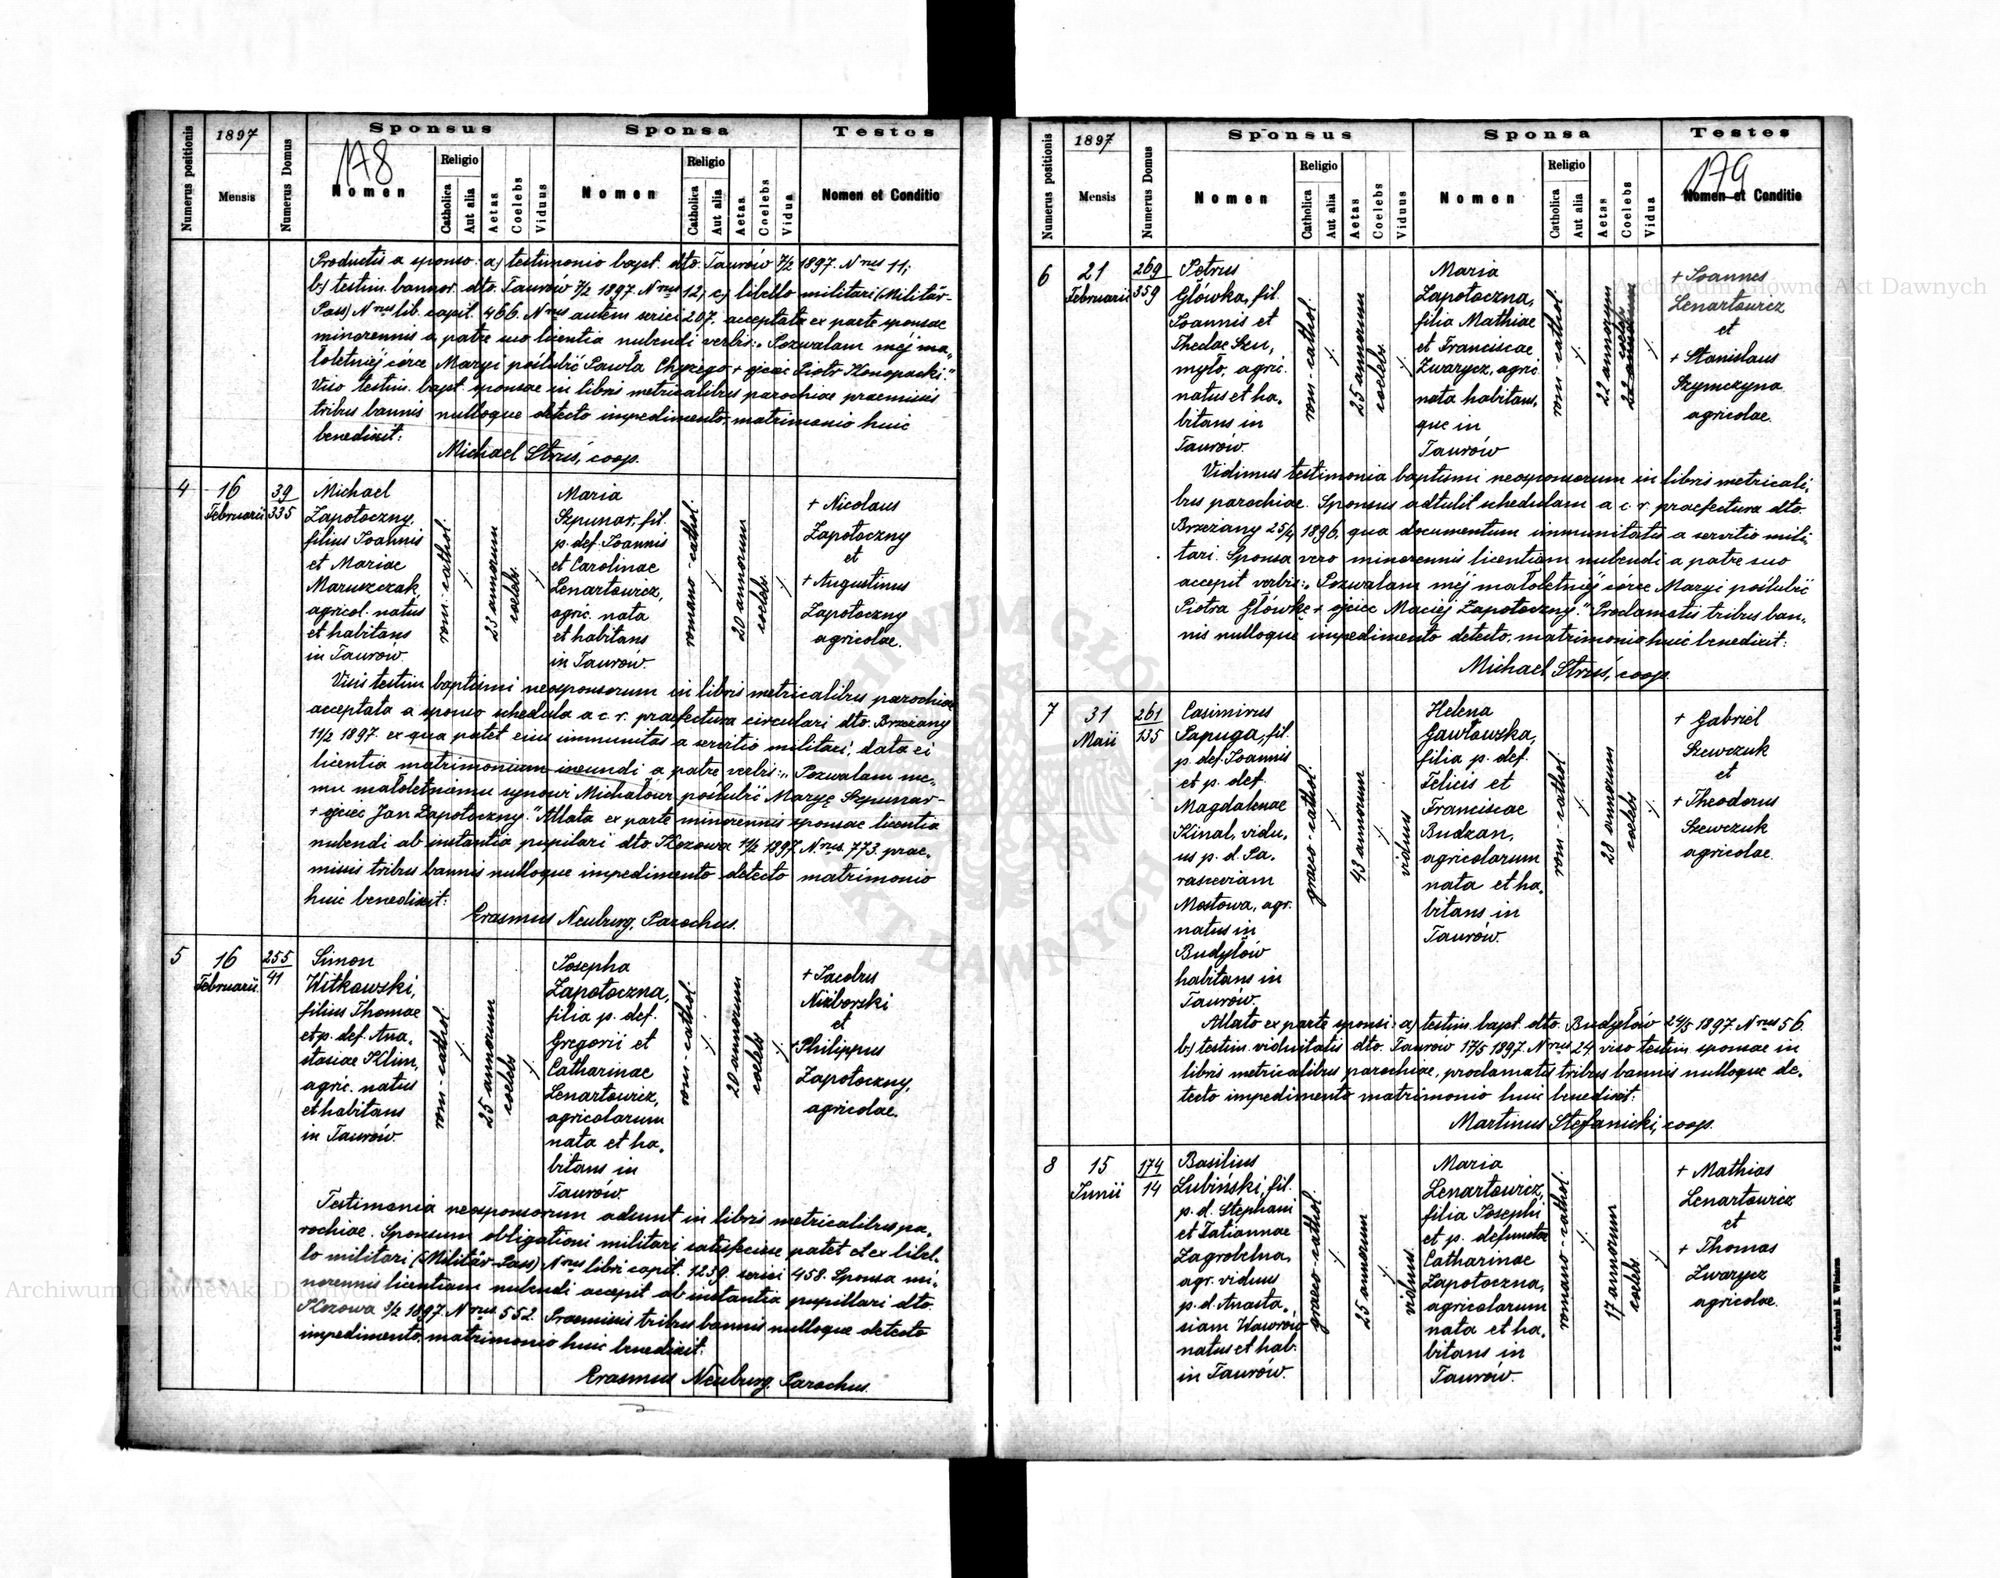 Numerus positionis
1897
Mensis
Numerus Domus
Sponsus
178
Nomen
Religio
Catholica
Aut alia
Aetas
Coelebs
Viduus
Sponsa
Nomen
Religio
Catholica
Aut alia
Aetas
Coelebs
Vidua
Testes
Nomen et Conditio
Productis a sponso: a) testimonio bapt. dto. Taurów 7/2 1897. Nrus 11;
b) testim. bannor. dto. Taurów 7/2 1897. Nrus 12; c) libello militari (Militär-
Pass) Nrus lib. capit. 466. Nrus autem seriei 207. acceptata ex parte sponsae
minorennis a patre suo licentia nubendi verbis: „Pozwalam mej ma„
łoletniéj córce Maryi poślubić Pawła Chyzego + ojciec Piotr Konopacki."
Viso testim. bapt. sponsae in libris metricalibus parochiae praemissis
tribus bannis nulloque detecto impedimento, matrimonio huic
benedixit:
Michael Struś, coop.
4
16
Februarii
39
335
Michael
Zapotoczny,
filius Joannis
et Mariae
Maruszczak,
agricol. natus
et habitans
in Taurów.
rom-cathol.
23 annorum
coelebs.
Maria
Szpunar, fil.
p. def. Joannis
et Carolinae
Lenartowicz,
agric. nata
et habitans
in Taurów.
romano-cathol.
20 annorum
coelebs.
+ Nicolaus
Zapotoczny
et
+ Augustinus
Zapotoczny
agricolae.
Visis testim. baptismi neosponsorum in libris metricalibus parochiae
acceptata a sponso schedula a c. r. praefectura circulari dto. Brzeżany
11/2 1897. ex qua patet eius immunitas a servitio militari; data ei
licentia matrimonium ineundi a patre verbis: „Pozwalam me„
mu małoletniemu synowi Michałowi poślubić Maryę Szpunar-
+ ojciec Jan Zapotoczny." Allata ex parte minorennis sponsae licentia
nubendi ab instantia pupilari dto. Kozowa 11/2 1897. Nrus. 773. prae„
missis tribus bannis nulloque impedimento detecto matrimonio
huic benedixit:
Erasmus Neuburg, Parochus.
5
16
Februarii.
255
41
Simon
Witkowski,
filius Thomae
et p. def. Ana„
stasiae Klim,
agric. natus
et habitans
in Taurów.
rom-cathol.
25 annorum
coelebs
Josepha
Zapotoczna,
filia p. def.
Gregorii et
Catharinae
Lenartowicz,
agricolarum
nata et ha„
bitans in
Taurów.
rom-cathol.
20 annorum
coelebs
+ Jacobus
Niżborski
et
+Philippus
Zapotoczny,
agricolae.
Testimonia neosponsorum adsunt in libris metricalibus pa„
rochiae. Sponsum obligationi militari satisfecisse patet et ex libel„
lo militari (Militär-Pass) Nrus libri capit. 1239. seriei 458. Sponsa mi„
norennis licentiam nubendi accepit ab instantia pupillari dto.
Kozowa 3/2 1897. Nrus. 552. Praemissis tribus bannis nulloque detecto
impedimento, matrimonio huic benedixit:
Erasmus Neuburg, Parochus.
Numerus positionis
1897
Mensis
Numerus Domus
Sponsus
Nomen
Religio
Catholica
Aut alia
Aetas
Coelebs
Viduus
Sponsa
Nomen
Religio
Catholica
Aut alia
Aetas
Coelebs
Vidua
Testes
179
Nomen et Conditio
6
21
Februarii
269
359
Petrus
Główka, fil.
Joannis et
Theclae Szu„
myło, agric.
natus et ha„
bitans in
Taurów.
rom-cathol.
25 annorum
coelebs.
Maria
Zapotoczna,
filia Mathiae
et Franciscae
Zwarycz, agric.
nata habitans„
que in
Taurów
rom-cathol.
22 annorum
coelebs
+ Joannes
Lenartowicz
et
+ Stanislaus
Szymczyna
agricolae.
Vidimus testimonia baptismi neosponsorum in libris metricali„
bus parochiae. Sponsus adtulit schedulam a c. r. praefectura dto.
Brzeżany 25/4 1896, qua documentum immunitatis a servitio mili„
tari. Sponsa vero minorennis licentiam nubendi a patre suo
accepit verbis: „Pozwalam mej małoletniéj córce Maryi poślubić
Piotra Główkę + ojciec Maciéj Zapotoczny." Proclamatis tribus ban„
nis nulloque impedimento detecto, matrimonio huic benedixit:
Michael Struś, coop.
7
31
Maii
261
135
Casimirus
Papuga, fil.
p. def. Joannis
et p. def.
Magdalenae
Kinal, vidu„
us p. d. Pa„
rasceviam
Mostowa, agr.
natus in
Budyłów
habitans in
Taurów.
graeco-cathol.
43 annorum
viduus
Helena
Gawłowska,
filia p. def.
Felicis et
Franciscae
Budzan,
agricolarum
nata et ha„
bitans in
Taurów.
rom-cathol.
28 annorum
coelebs
+ Gabriel
Szewczuk
et
+ Theodorus
Szewczuk
agricolae.
Allato ex parte sponsi: a) testim. bapt. dto. Budyłów 24/5 1897. Nrus 56.
b) testim. viduitatis dto. Taurów 17/5 1897. Nrus 24. viso testim. sponsae in
libris metricalibus parochiae, proclamatis tribus bannis nulloque de„
tecto impedimento matrimonio huic benedixit:
Martinus Stefanicki, coop.
8
15
Junii
174
14
Basilius
Lubiński, fil.
p. d. Stephani
et Tatiannae
Zagrobelna,
agr. viduus
p. d. Anasta„
siam Waworów
natus et hab.
in Taurów.
graeco-cathol.
25 annorum
viduus.
Maria
Lenartowicz,
filia Josephi
et p. defunctae
Catharinae
Zapotoczna,
agricolarum
nata et ha„
bitans in
Taurów.
romano-cathol.
17 annorum
coelebs
+ Mathias
Lenartowicz
et
+ Thomas
Zwarycz
agricolae.
Archiwum Główne Akt Dawnych
Archiwum Główne Akt Dawnych